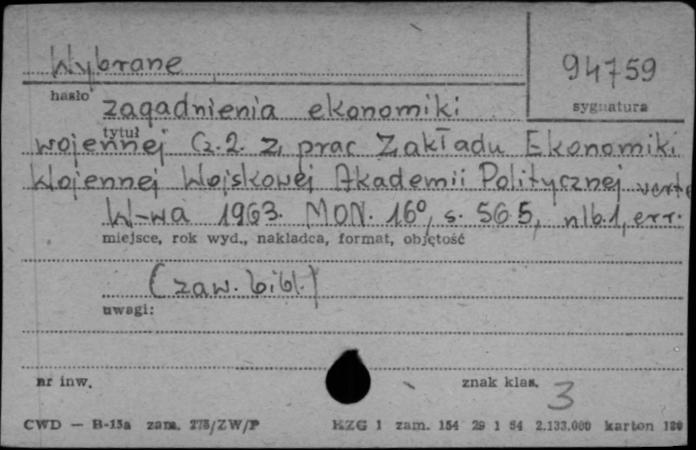 Wybrane
94759
hasło
sygnatura
zagadnienia ekonomiki
tytuł
wojennej Cz. 2. Z prac Zakładu Ekonomiki
Wojennej Wojskowej Akademii Politycznej verte
W-wa 1963. MON. 16°, s. 565, nlb.1, err.
miejsce, rok wyd., nakładca, format, objętość
(zaw. bibl.)
uwagi:
nr inw.
znak klas. 3
CWD — B-15a zam. 278/ZW/P
RZG 1 zam. 154 29 1 54 2.133.000 karton 180